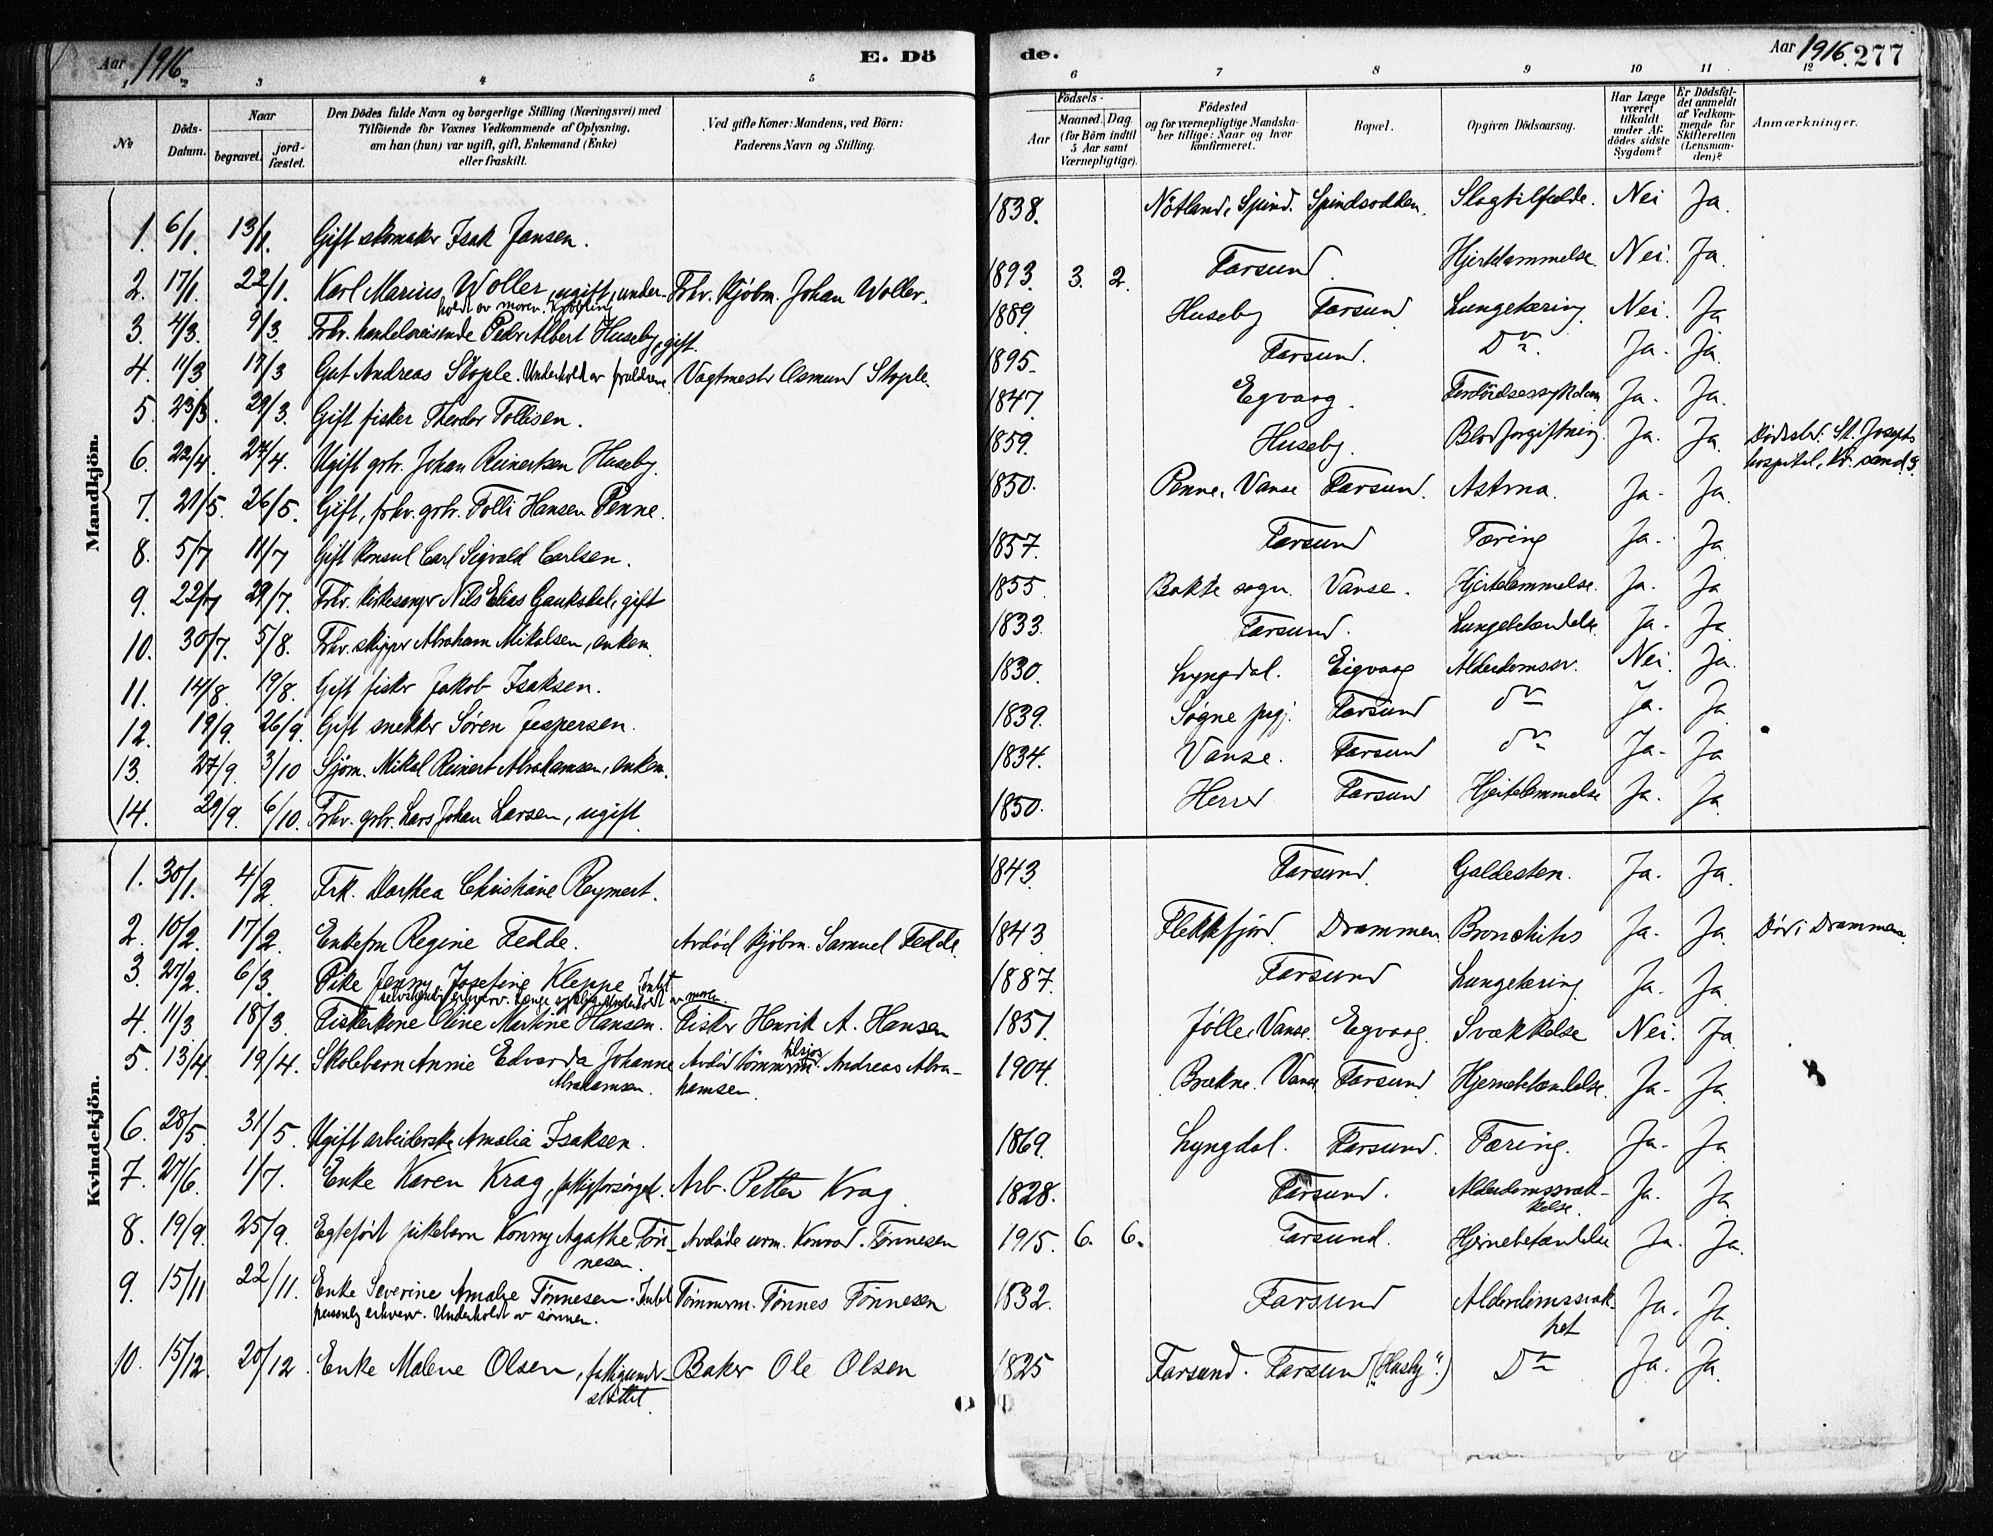 Aar 1916. E. Dö de. Aar 1916. 277
1 2 3 4 5 6 7 8 9 10 11 12
No
Döds-Datum.
Naar
begravet. jord-fæstet.
Den Dödes fulde Navn og borgerlige Stilling (Næringsvei) med
Tilföiende for Voxnes Vedkommende af Oplysning,
om han (hun) var ugift, gift, Enkemand (Enke)
eller fraskilt.
Ved gifte Koner: Mandens, ved Börn:
Faderens Navn og Stilling.
Födsels-
Aar Maaned. Dag
(for Börn indtil
5 Aar samt
Værnepligtige).
Födested
og for værnepligtige Mandska-
ber tillige: Naar og hvor
konfirmeret.
Bopæl.
Opgiven Dödsaarsag.
Har Læge
været
tilkaldt
under Af-
dödes sidste
Sygdom?
Er Dödsfal-
det anmeldt
af Vedkom-
mende for
Skifteretten
(Lensman-
den)?
Anmærkninger.
Mandkjön.
1. 6/1. 13/1. Gift skomaker Isak Jansen. 1838. Nötland, Spind. Spindsodden. Slagtilfælde. Nei Ja.
2. 17/1. 22/1. Karl Marius Woller, ugift, under- Fhv. Kjöbm. Johan Woller. 1893 3. 2. Farsund. Hjertelammelse. Nei. Ja.
holdt av moren.
3. 4/3. 9/3. Fhv. handelsreisende Peder Albert Huseby, gift. 1889. Huseby Farsund Lungetæring. Nei. Ja
4. 11/3 17/3 Gut Andreas Stople. Underholdt av foreldrene. Vagtmester Osmund Stople. 1895. Farsund. Do. Ja. Ja.
5. 23/3. 29/3. Gift fisker Theodor Tollisen. 1847. Egvaag. Fordöielsessykdom Ja. Ja.
6. 22/4. 27/4. Ugift grbr. Johan Reinertsen Huseby. 1859. Huseby. Blodforgiftning. Ja. Ja. Dödssted: St. Josephs
hospital, Kr.sand S.
7. 21/5. 26/5. Gift, forhv. grbr. Tolli Hansen Penne. 1850. Penne, Vanse Farsund. Astma. Ja. Ja.
8. 5/7 11/7 Gift konsul Carl Sigvald Carlsen. 1857. Farsund Tæring Ja. Ja
9. 22/7 29/7. Fhv. kirkesanger Nils Elias Gaukstel, gift 1855. Bakke sogn. Vanse. Hjertelammelse. Ja. Ja
10. 30/7. 5/8. Fhv. skipper Abraham Mikalsen, enkem. 1833. Farsund. Lungebetændelse. Ja. Ja.
11. 14/8. 19/8. Gift fisker Jakob Isaksen. 1830. Lyngdal. Eigvaag Alderdomssv. Nei. Ja.
12. 19/9. 26/9. Gift snekker Sören Jespersen. 1839. Søgne prgj. Farsund do Ja. Ja
13. 27/9. 3/10 Sjöm. Mikal Reinert Abrahamsen, enkem. 1834. Vanse. Farsund do Ja. Ja
14. 29/9. 6/10. Fhv. grbr. Lars Johan Larsen, ugift 1850. Herred Farsund Hjertelammelse Ja. Ja.
Kvindekjön.
1. 30/1. 4/2. Frk. Dorthea Christiane Reymert. 1843. Farsund. Galdesten. Ja. Ja.
2. 10/2. 17/2. Enkefru Regine Fedde. Avdöd kjöbm. Samuel Fedde. 1843 Flekkefjord. Drammen. Bronchitis Ja. Ja. Död i Drammen.
3. 27/2. 6/3. Pike Jenny Josefine Kleppe. Intet 1887. Farsund Lungetæring. Ja. Ja.
selvstændig erhverv. Længe sykelig. Underholdt av moren.
4. 11/3. 18/3. Fiskerkone Oline Martine Hansen. Fisker Henrik A. Hansen 1851. Jölle, Vanse. Eegvaag. Svækkelse Nei. Ja.
5. 13/4. 19/4. Skolebarn Annie Edvarda Johanne Avdöd tömmerm. tilsjös Andreas Abra- 1904. Brekne, Vanse Farsund Hjernebetændelse. Ja. Ja.
Abrahamsen. hamsen.
6. 28/5. 31/5. Ugift arbeiderske Amalia Isaksen. 1869. Lyngdal. Farsund. Tæring. Ja. Ja
7. 27/6. 1/7. Enke Karen Krag, fattigforsörget. Arb. Petter Krag. 1828. Farsund. Alderdomssvæk- Ja. Ja
kelse.
8. 19/9. 25/9. Egtefödt pikebarn Konny Agathe Tön- Avdöde urm. Konrad Tönnesen 1915. 6. 6. Farsund. Hjernebetændelse Ja. Ja.
nesen.
9. 15/11 22/11. Enke Severine Amalie Tönnesen. Intet Tömmerm. Tönnes Tönnesen 1832. Farsund Alderdomssvak- Ja. Ja.
personlig erhverv. Underholdt av sönnen. het
10. 15/12. 20/12. Enke Malene Olsen, fattigunder- Baker Ole Olsen 1825 Farsund. Farsund ("Husby".) Do Ja. Ja.
stöttet.